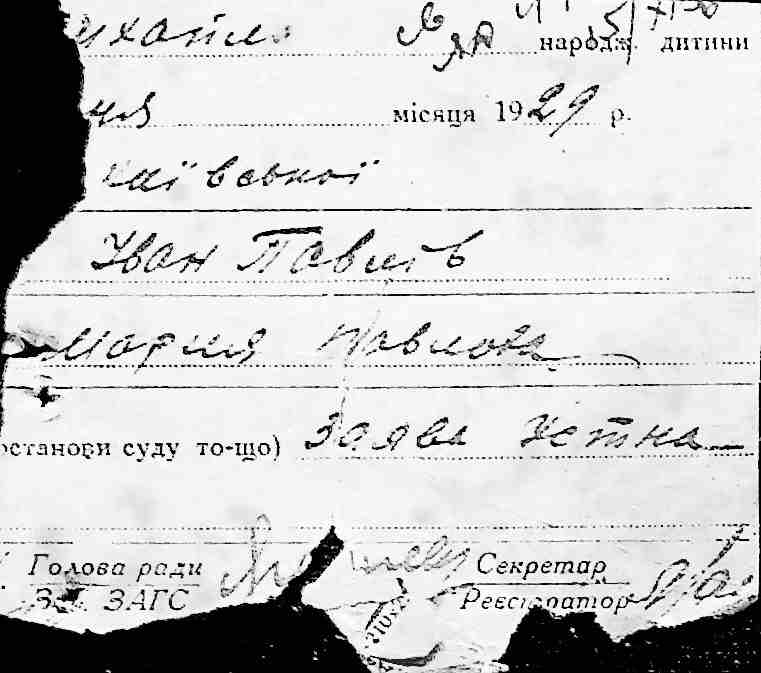 народж. дитини
ня місяця 1929 р.
ївської
Іван Павлів
Мария Павлова
останови суду то-що) Заява Устна
Голова ради Секретар
Зав. ЗАГС Реєстратор